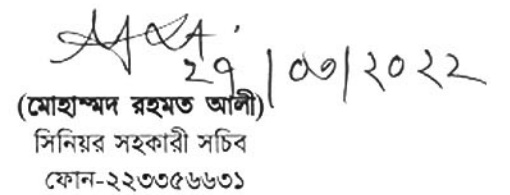 ২৭/০৩/২০২২
(মোহাম্মদ রহমত আলী)
সিনিয়র সহকারী সচিব
ফোন-২২৩৩৫৬৬৩১